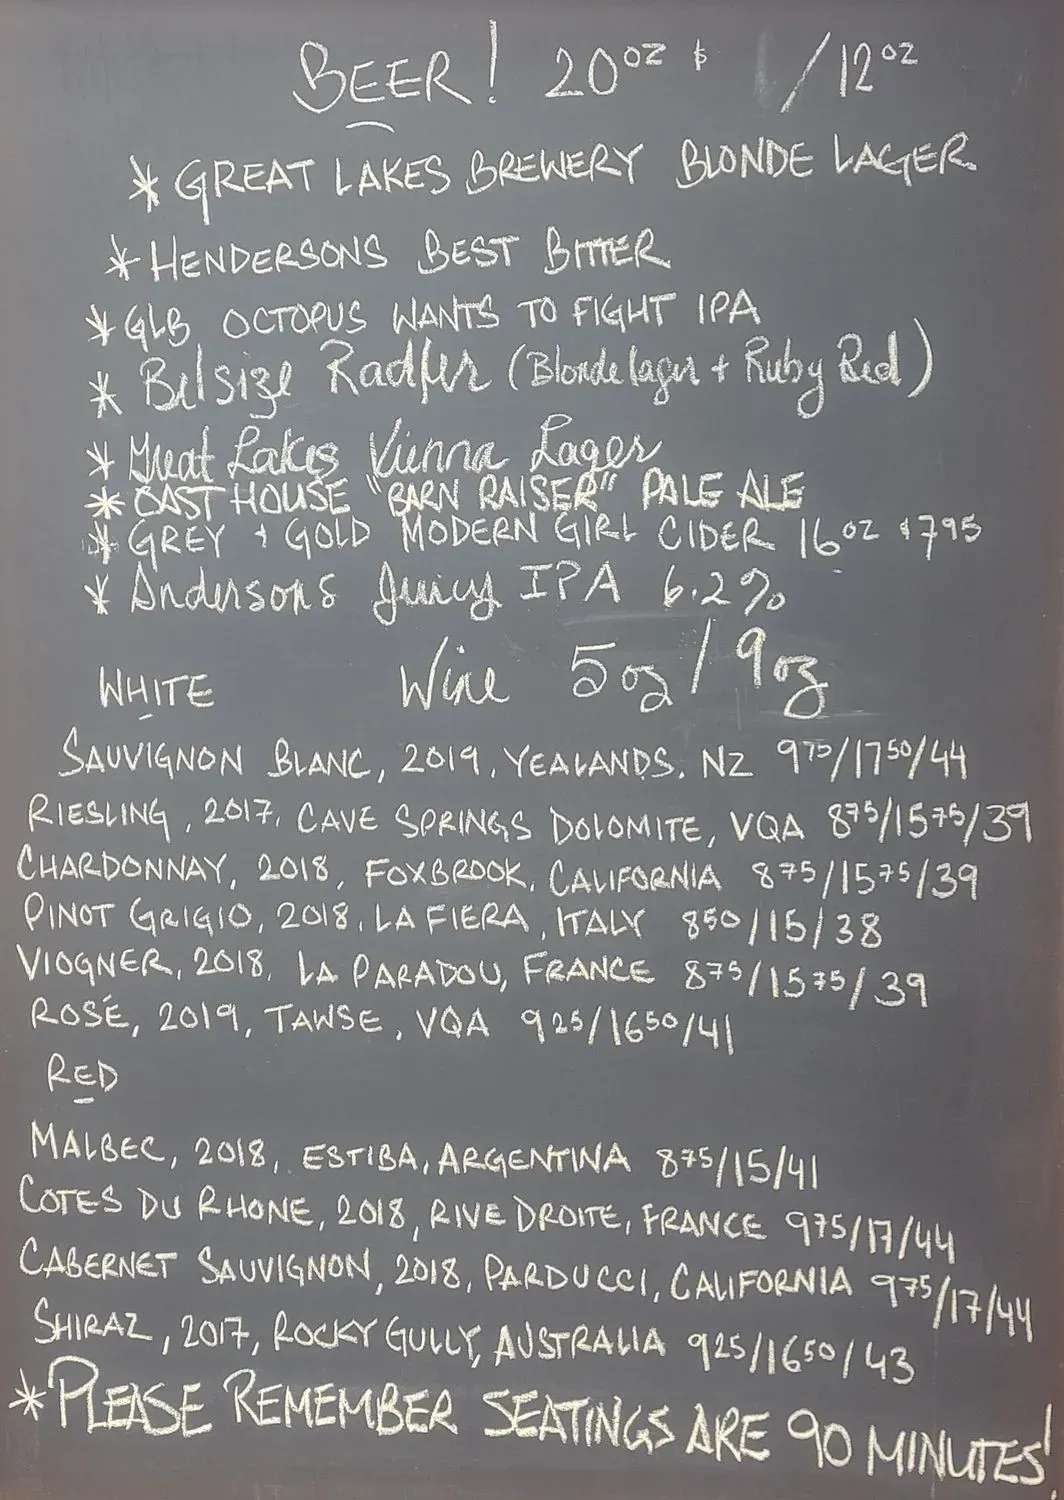 BEER! 20oz $ /12oz
* GREAT LAKES BREWERY BLONDE LAGER
* HENDERSONS BEST BITTER
* GLB OCTOPUS WANTS TO FIGHT IPA
* Belsize Radler (Blonde lager + Ruby Red)
* Great Lakes Vienna Lager
* EAST HOUSE "BARN RAISER" PALE ALE
* GREY + GOLD MODERN GIRL CIDER 16oz $795
* Andersons Juicy IPA 6.2%
WHITE Wine 5oz / 9oz
SAUVIGNON BLANC, 2019, YEALANDS, NZ 975/1750/44
RIESLING, 2017, CAVE SPRINGS DOLOMITE, VQA 875/1575/39
CHARDONNAY, 2018, FOXBROOK, CALIFORNIA 875/1575/39
PINOT GRIGIO, 2018, LA FIERA, ITALY 850/15/38
VIOGNER, 2018, LA PARADOU, FRANCE 875/1575/39
ROSÉ, 2019, TAWSE, VQA 925/1650/41
RED
MALBEC, 2018, ESTIBA, ARGENTINA 875/15/41
COTES DU RHONE, 2018, RIVE DROITE, FRANCE 975/17/44
CABERNET SAUVIGNON, 2018, PARDUCCI, CALIFORNIA 975/17/44
SHIRAZ, 2017, ROCKY GULLY, AUSTRALIA 925/1650/43
* PLEASE REMEMBER SEATINGS ARE 90 MINUTES!